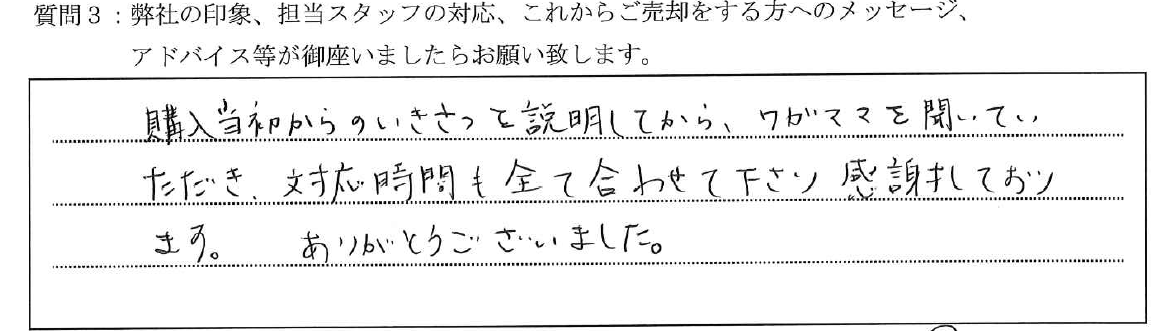 質問３：弊社の印象、担当スタッフの対応、これからご売却をする方へのメッセージ、
アドバイス等が御座いましたらお願い致します。
購入当初からのいきさつを説明してから、ワガママを聞いてい
ただき、対応時間も全て合わせて下さり感謝しており
ます。　ありがとうございました。